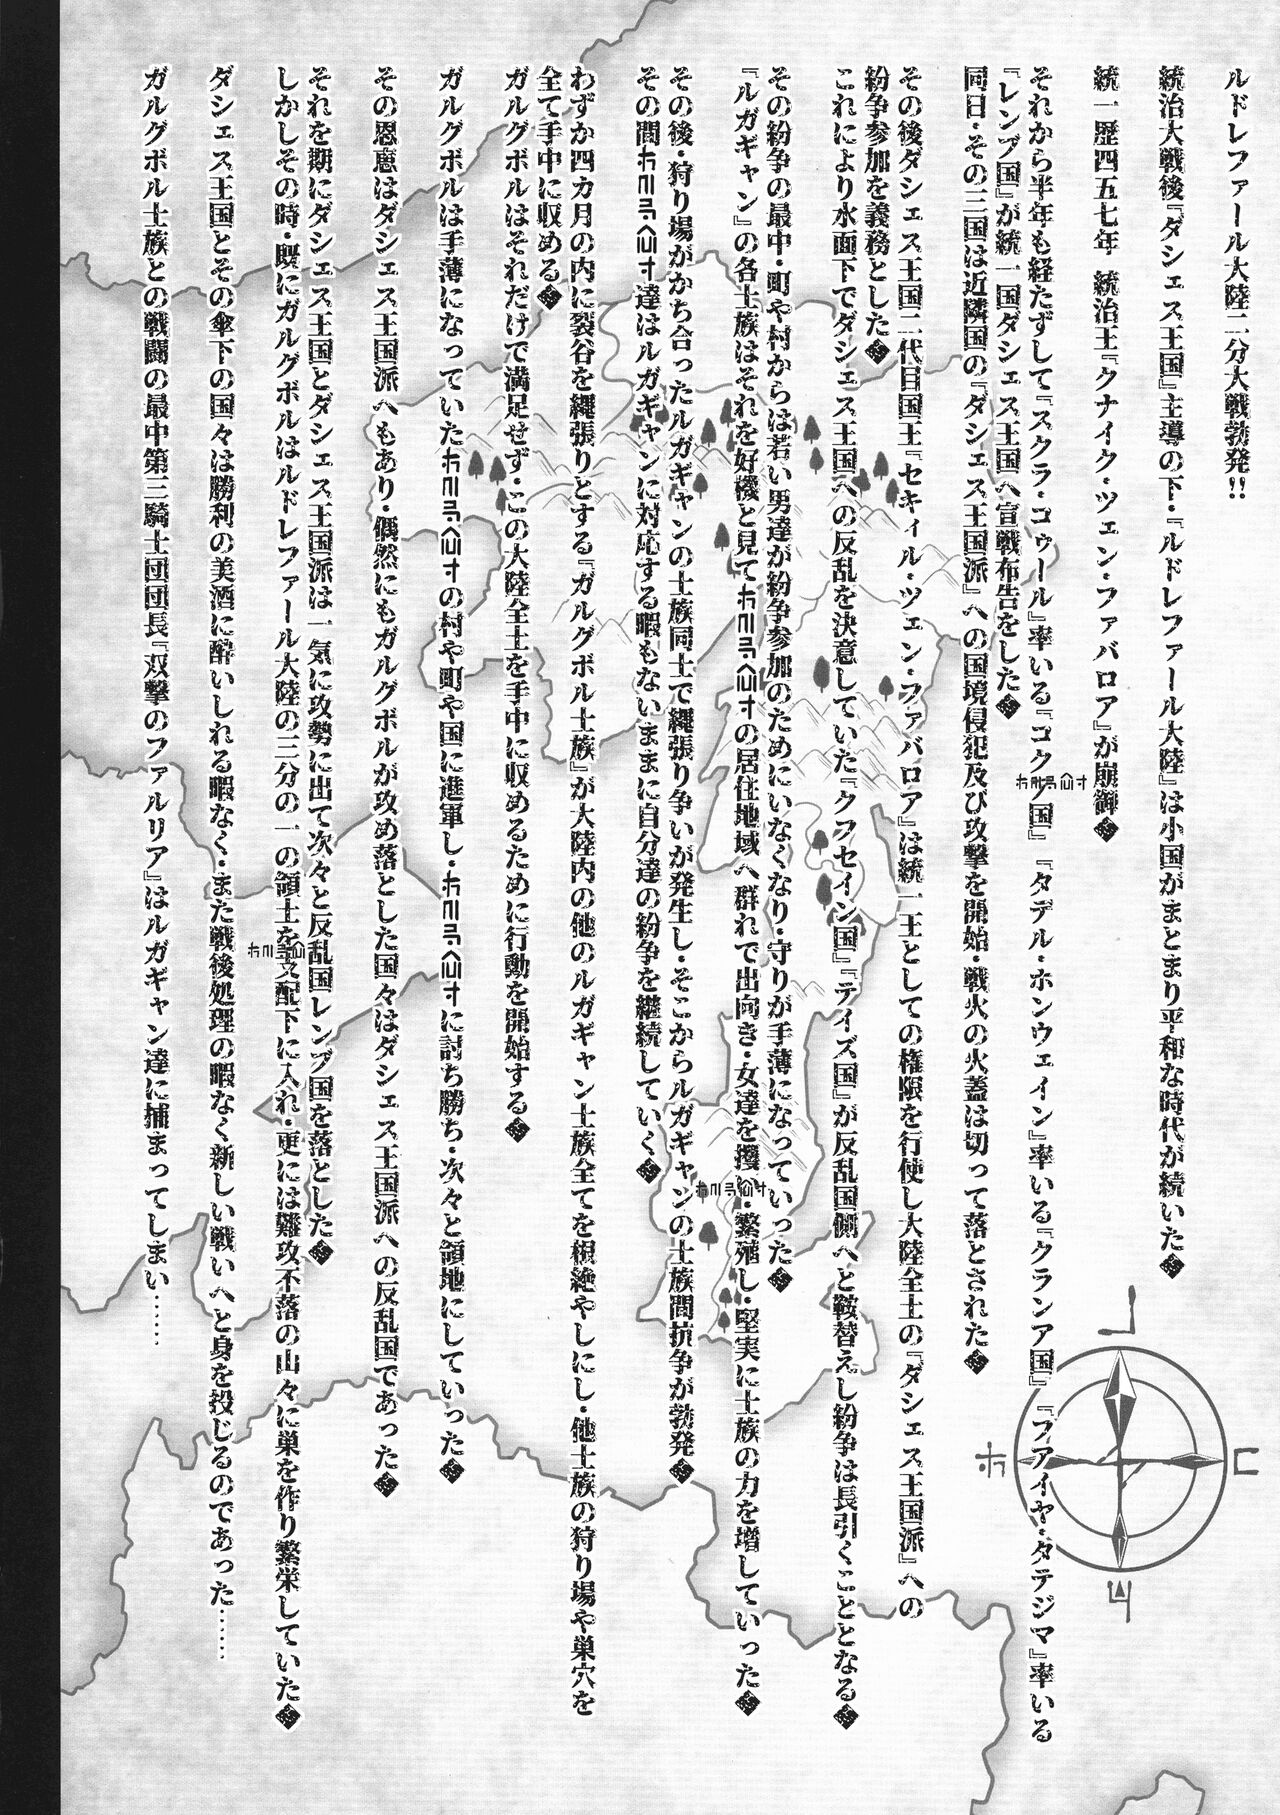 ルドレファール大陸二分大戦勃発!!
統治大戦後『ダシェス王国』主導の下・『ルドレファール大陸』は小国がまとまり平和な時代が続いた◆
統一歴四五七年 統治王『クナイク・ツェン・ファバロア』が崩御◆
それから半年も経たずして『スクラ・ゴゥール』率いる『コクノ国』『タデル・ホンウェイン』率いる『クランア国』『フアイヤ・タテジマ』率いる
『レンブ国』が統一国ダシェス王国へ宣戦布告をした◆
同日・その三国は近隣国の『ダシェス王国派』への国境侵犯及び攻撃を開始・戦火の火蓋は切って落とされた◆
その後ダシェス王国二代目国王『セキィル・ツェン・ファバロア』は統一王としての権限を行使し大陸全土の『ダシェス王国派』への
紛争参加を義務とした◆
これにより水面下でダシェス王国への反乱を決意していた『クフセイン国』『テイズ国』が反乱国側へと鞍替えし紛争は長引くこととなる◆
その紛争の最中・町や村からは若い男達が紛争参加のためにいなくなり・守りが手薄になっていった◆
『ルガギャン』の各士族はそれを好機と見ての居住地域へ群れで出向き・女達を攫い・繁殖し・堅実に士族の力を増していった◆
その後・狩り場がかち合ったルガギャンの士族同士で縄張り争いが発生し・そこからルガギャンの士族間抗争が勃発◆
その間達はルガギャンに対応する暇もないままに自分達の紛争を継続していく◆
わずか四カ月の内に裂谷を縄張りとする『ガルグボル士族』が大陸内の他のルガギャン士族全てを根絶やしにし・他士族の狩り場や巣穴を
全て手中に収める◆
ガルグボルはそれだけで満足せず・この大陸全土を手中に収めるために行動を開始する◆
ガルグボルは手薄になっていたの村や町や国に進軍し・に討ち勝ち・次々と領地にしていった◆
その恩恵はダシェス王国派へもあり・偶然にもガルグボルが攻め落とした国々はダシェス王国派への反乱国であった◆
それを期にダシェス王国とダシェス王国派は一気に攻勢に出て次々と反乱国レンブ国を落とした◆
しかしその時・既にガルグボルはルドレファール大陸の三分の一の領土を支配下に入れ・更には難攻不落の山々に巣を作り繁栄していた◆
ダシェス王国とその傘下の国々は勝利の美酒に酔いしれる暇なく・また戦後処理の暇なく新しい戦いへと身を投じるのであった……
ガルグボル士族との戦闘の最中第三騎士団団長『双撃のファルリア』はルガギャン達に捕まってしまい……